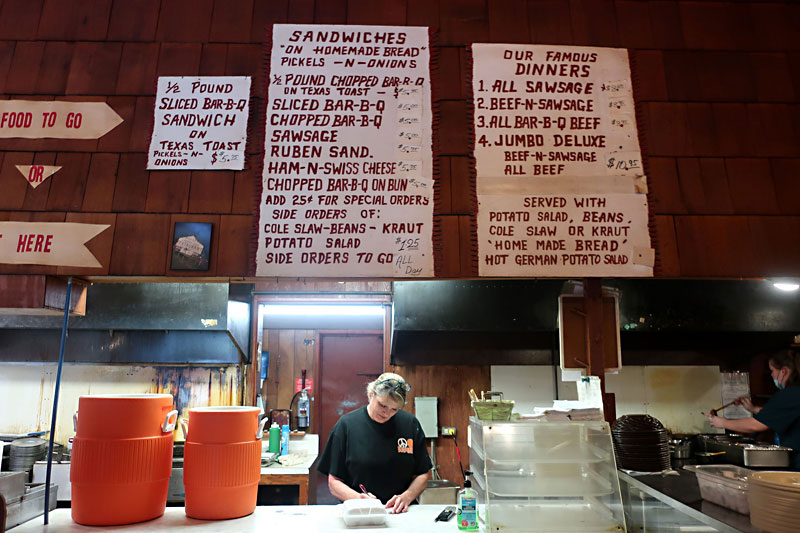 FOOD TO GO
OR
HERE
½ POUND
SLICED BAR-B-Q
SANDWICH
ON
TEXAS TOAST
PICKELS-N-
ONIONS
SANDWICHES
"ON HOMEMADE BREAD"
PICKELS -N-ONIONS
½ POUND CHOPPED BAR-B-Q
ON TEXAS TOAST
SLICED BAR-B-Q
CHOPPED BAR-B-Q
SAUSAGE
RUBEN SAND.
HAM-N-SWISS CHEESE
CHOPPED BAR-B-Q ON BUN
ADD 25¢ FOR SPECIAL ORDERS
SIDE ORDERS OF:
COLE SLAW-BEANS-KRAUT
POTATO SALAD $1.25
SIDE ORDERS TO GO ALL
DAY
OUR FAMOUS
DINNERS
1. ALL SAUSAGE
2. BEEF-N-SAUSAGE
3. ALL BAR-B-Q BEEF
4. JUMBO DELUXE
BEEF-N-SAUSAGE $10.95
ALL BEEF
SERVED WITH
POTATO SALAD, BEANS,
COLE SLAW OR KRAUT
"HOME MADE BREAD"
HOT GERMAN POTATO SALAD